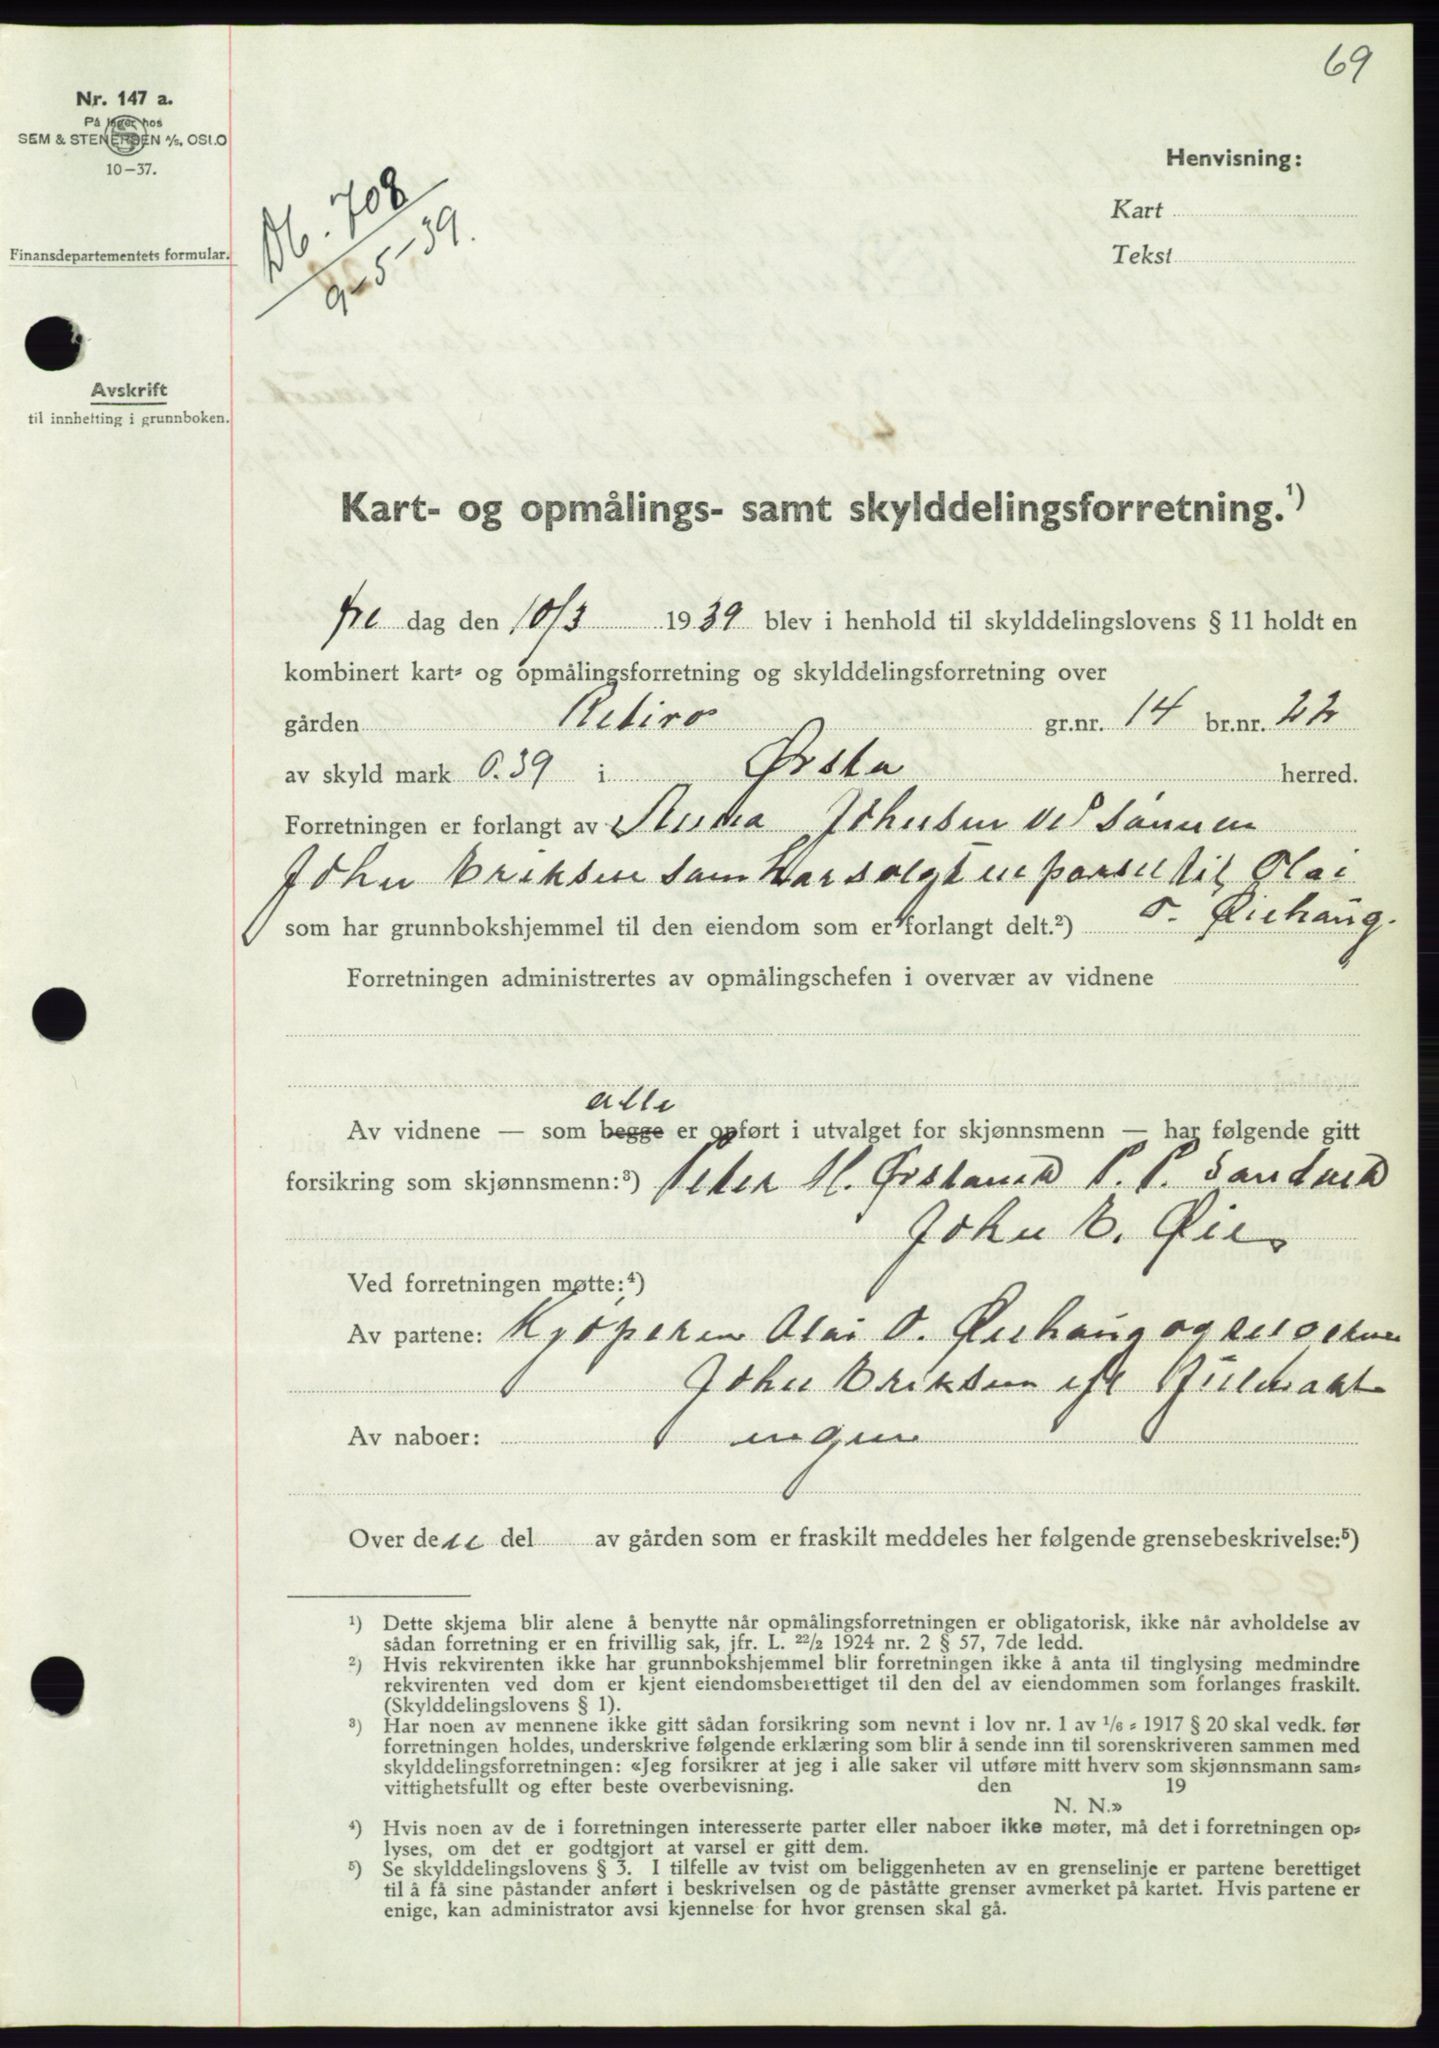 69
Nr. 147 a.
På lager hos
SEM & STENERSEN A/S, OSLO
10-37.
Finansdepartementets formular.
Avskrift
til innhefting i grunnboken.
Db. 708
9-5-39.
Henvisning:
Kart
Tekst
Kart- og opmålings- samt skylddelingsforretning.¹)
fre dag den 10/3 1939 blev i henhold til skylddelingslovens § 11 holdt en
kombinert kart- og opmålingsforretning og skylddelingsforretning over
gården Retiro gr.nr. 14 br.nr. 22
av skyld mark 0.39 i Ørsta herred.
Forretningen er forlangt av Anna Johnsen ved sønnen
John Eriksen som har solgt en parsel til Olai
som har grunnbokshjemmel til den eiendom som er forlangt delt.²) O. Øiehaug.
Forretningen administrertes av opmålingschefen i overvær av vidnene
alle
Av vidnene — som begge er opført i utvalget for skjønnsmenn — har følgende gitt
forsikring som skjønnsmenn:³) Peter H. Ørstavik P. P. Sandvik
John E. Øie
Ved forretningen møtte:⁴)
Av partene: Kjøperen Olai O. Øiehaug og selgeren
John Eriksen efl fullmakt
Av naboer: ingen
Over den del av gården som er fraskilt meddeles her følgende grensebeskrivelse:⁵)
¹) Dette skjema blir alene å benytte når opmålingsforretningen er obligatorisk, ikke når avholdelse av
sådan forretning er en frivillig sak, jfr. L. 22/2 1924 nr. 2 § 57, 7de ledd.
²) Hvis rekvirenten ikke har grunnbokshjemmel blir forretningen ikke å anta til tinglysing medmindre
rekvirenten ved dom er kjent eiendomsberettiget til den del av eiendommen som forlanges fraskilt.
(Skylddelingslovens § 1).
³) Har noen av mennene ikke gitt sådan forsikring som nevnt i lov nr. 1 av 1/6 - 1917 § 20 skal vedk. før
forretningen holdes, underskrive følgende erklæring som blir å sende inn til sorenskriveren sammen med
skylddelingsforretningen: «Jeg forsikrer at jeg i alle saker vil utføre mitt hverv som skjønnsmann sam-
vittighetsfullt og efter beste overbevisning. den 19
N. N.»
⁴) Hvis noen av de i forretningen interesserte parter eller naboer ikke møter, må det i forretningen op-
lyses, om det er godtgjort at varsel er gitt dem.
⁵) Se skylddelingslovens § 3. I tilfelle av tvist om beliggenheten av en grenselinje er partene berettiget
til å få sine påstander anført i beskrivelsen og de påståtte grenser avmerket på kartet. Hvis partene er
enige, kan administrator avsi kjennelse for hvor grensen skal gå.